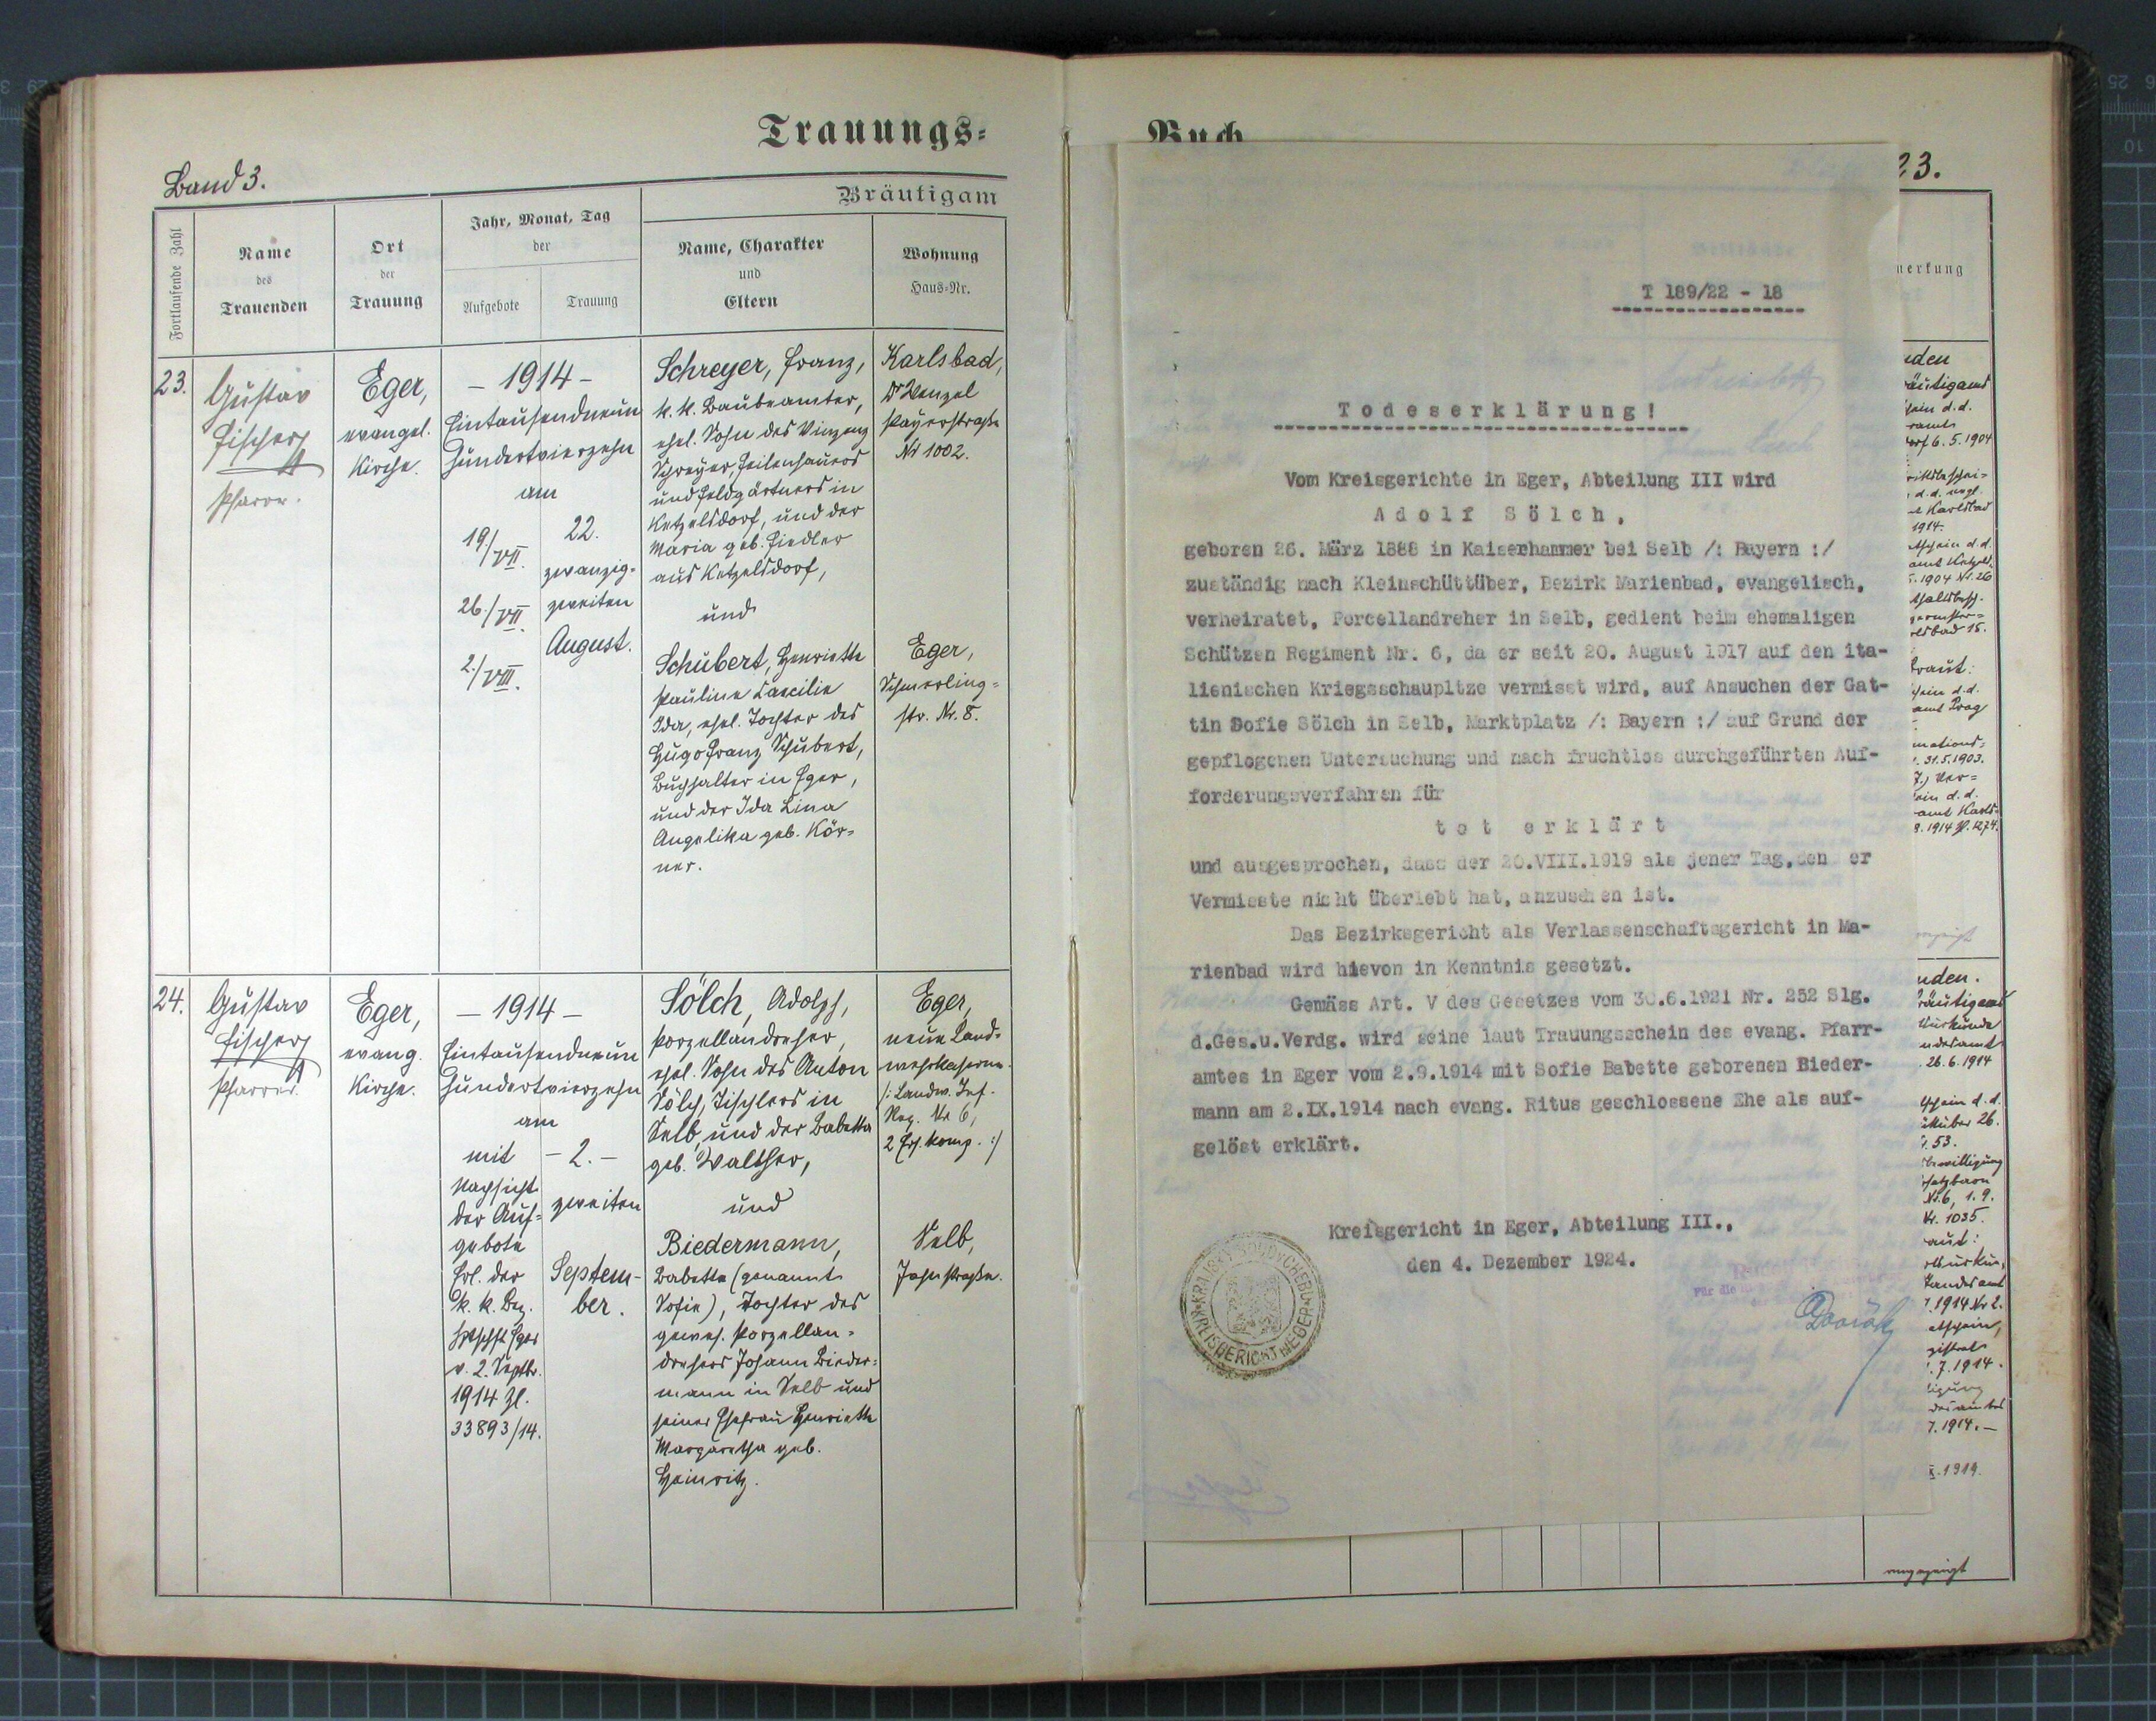 Trauungs=
Buch
Band 3.
23.
Bräutigam
Fortlaufende Zahl
Name
des
Trauenden
Ort
der
Trauung
Jahr, Monat, Tag
der
Aufgebote
Trauung
Name, Charakter
und
Eltern
Wohnung
Haus=Nr.
23.
Gustav
Fischer
Pfarrer.
Eger,
evangel.
Kirche.
- 1914 -
Eintausendneun
hundertvierzehn
am
19./VII.
26./VII.
2./VIII.
22.
zwanzig=
zweiten
August.
Schreyer, Franz,
k. k. Baubeamter,
ehel. Sohn des Vinzenz
Schreyer, Feilenhauers
und Feldgärtners in
Ketzelsdorf, und der
Maria geb. Fiedler
aus Ketzelsdorf,
und
Schubert, Henriette
Pauline Caecilie
Ida, ehel. Tochter des
Hugo Franz Schubert,
Buchhalter in Eger,
und der Ida Lina
Angelika geb. Kör=
ner.
Karlsbad,
Dr Wenzel
Payerstraße
Nr 1002.
Eger,
Schmerling=
str. Nr. 8.
24.
Gustav
Fischer
Pfarrer.
Eger,
evang.
Kirche.
- 1914 -
Eintausendneun
hundertvierzehn
am
mit
Nachsicht
der Auf=
gebote
Erl. der
k. k. Bez.
Htschft Eger
v. 2. Septbr.
1914 Zl.
33893/14.
- 2. -
zweiten
Septem-
ber.
Sölch, Adolph,
Porzellandreher,
ehel. Sohn des Anton
Sölch, Tischlers in
Selb, und der Babetta
geb. Walther,
und
Biedermann,
Babetta (genannt
Sofie), Tochter des
gewes. Porzellan=
drehers Johann Bieder=
mann in Selb und
seiner Ehefrau Henriette
Margaretha geb.
Heinritz.
Eger,
neue Land=
wehrkaserne
/: Landw. Inf.
Reg. Nr 6,
2 Ers. Komp. :/
Selb,
Jahnstraße.
T 189/22 - 18
Todeserklärung!
Vom Kreisgerichte in Eger, Abteilung III wird
Adolf Sölch,
geboren 26. März 1888 in Kaiserhammer bei Selb /: Bayern :/
zuständig nach Kleinschüttüber, Bezirk Marienbad, evangelisch,
verheiratet, Porcellandreher in Selb, gedient beim ehemaligen
Schützen Regiment Nr. 6, da er seit 20. August 1917 auf den ita-
lienischen Kriegsschaupltze vermisst wird, auf Ansuchen der Gat-
tin Sofie Sölch in Selb, Marktplatz /: Bayern :/ auf Grund der
gepflogenen Untersuchung und nach fruchtlos durchgeführten Auf-
forderungsverfahren für
tot erklärt
und ausgesprochen, dass der 20.VIII.1919 als jener Tag,den er
Vermisste nicht überlebt hat, anzusehen ist.
Das Bezirksgericht als Verlassenschaftsgericht in Ma-
rienbad wird hievon in Kenntnis gesetzt.
Gemäss Art. V des Gesetzes vom 30.6.1921 Nr. 252 Slg.
d.Ges.u.Verdg. wird seine laut Trauungsschein des evang. Pfarr-
amtes in Eger vom 2.9.1914 mit Sofie Babette geborenen Bieder-
mann am 2.IX.1914 nach evang. Ritus geschlossene Ehe als auf-
gelöst erklärt.
Kreisgericht in Eger, Abteilung III.,
den 4. Dezember 1924.
KRAJSKÝ SOUD V CHEBU
KREISGERICHT IN EGER
Für die
merkung
6. 5. 1904
d. d.
Karlsbad
1914.
d. d.
1904 Nr. 26
d. d.
Prag
31.5.1903.
d. d.
1914
26. 6. 1914
d. d.
26.
53.
Nr. 6, 1. 9.
Nr. 1035.
1914 Nr 2.
7. 1914.
7. 1914. -
1919.